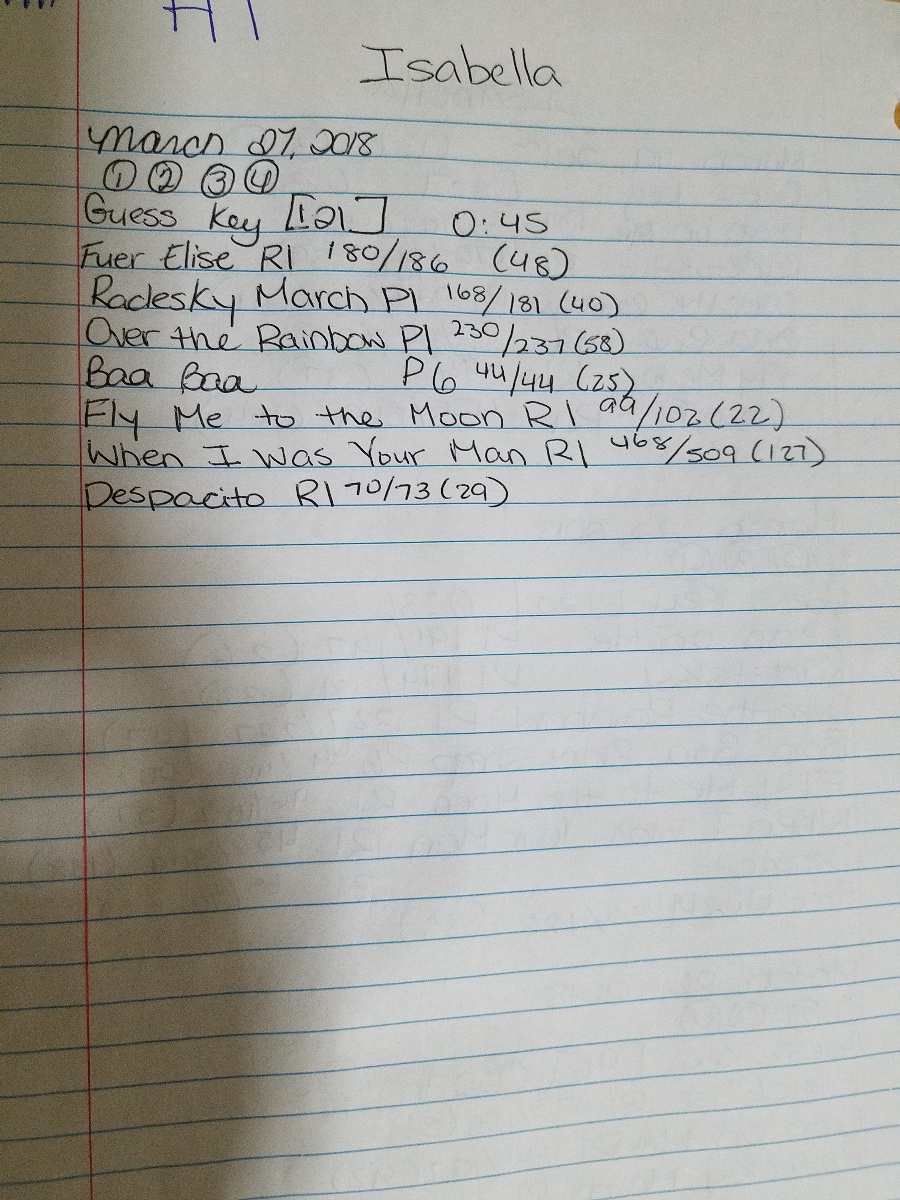 Isabella
March 27, 2018
① ② ③ ④
Guess Key [1.21] 0:45
Fuer Elise R1 180/186 (48)
Radesky March P1 168/181 (40)
Over the Rainbow P1 230/237 (58)
Baa Baa P6 44/44 (25)
Fly Me to the Moon R1 99/102 (22)
When I Was Your Man R1 468/509 (127)
Despacito R1 70/73 (29)